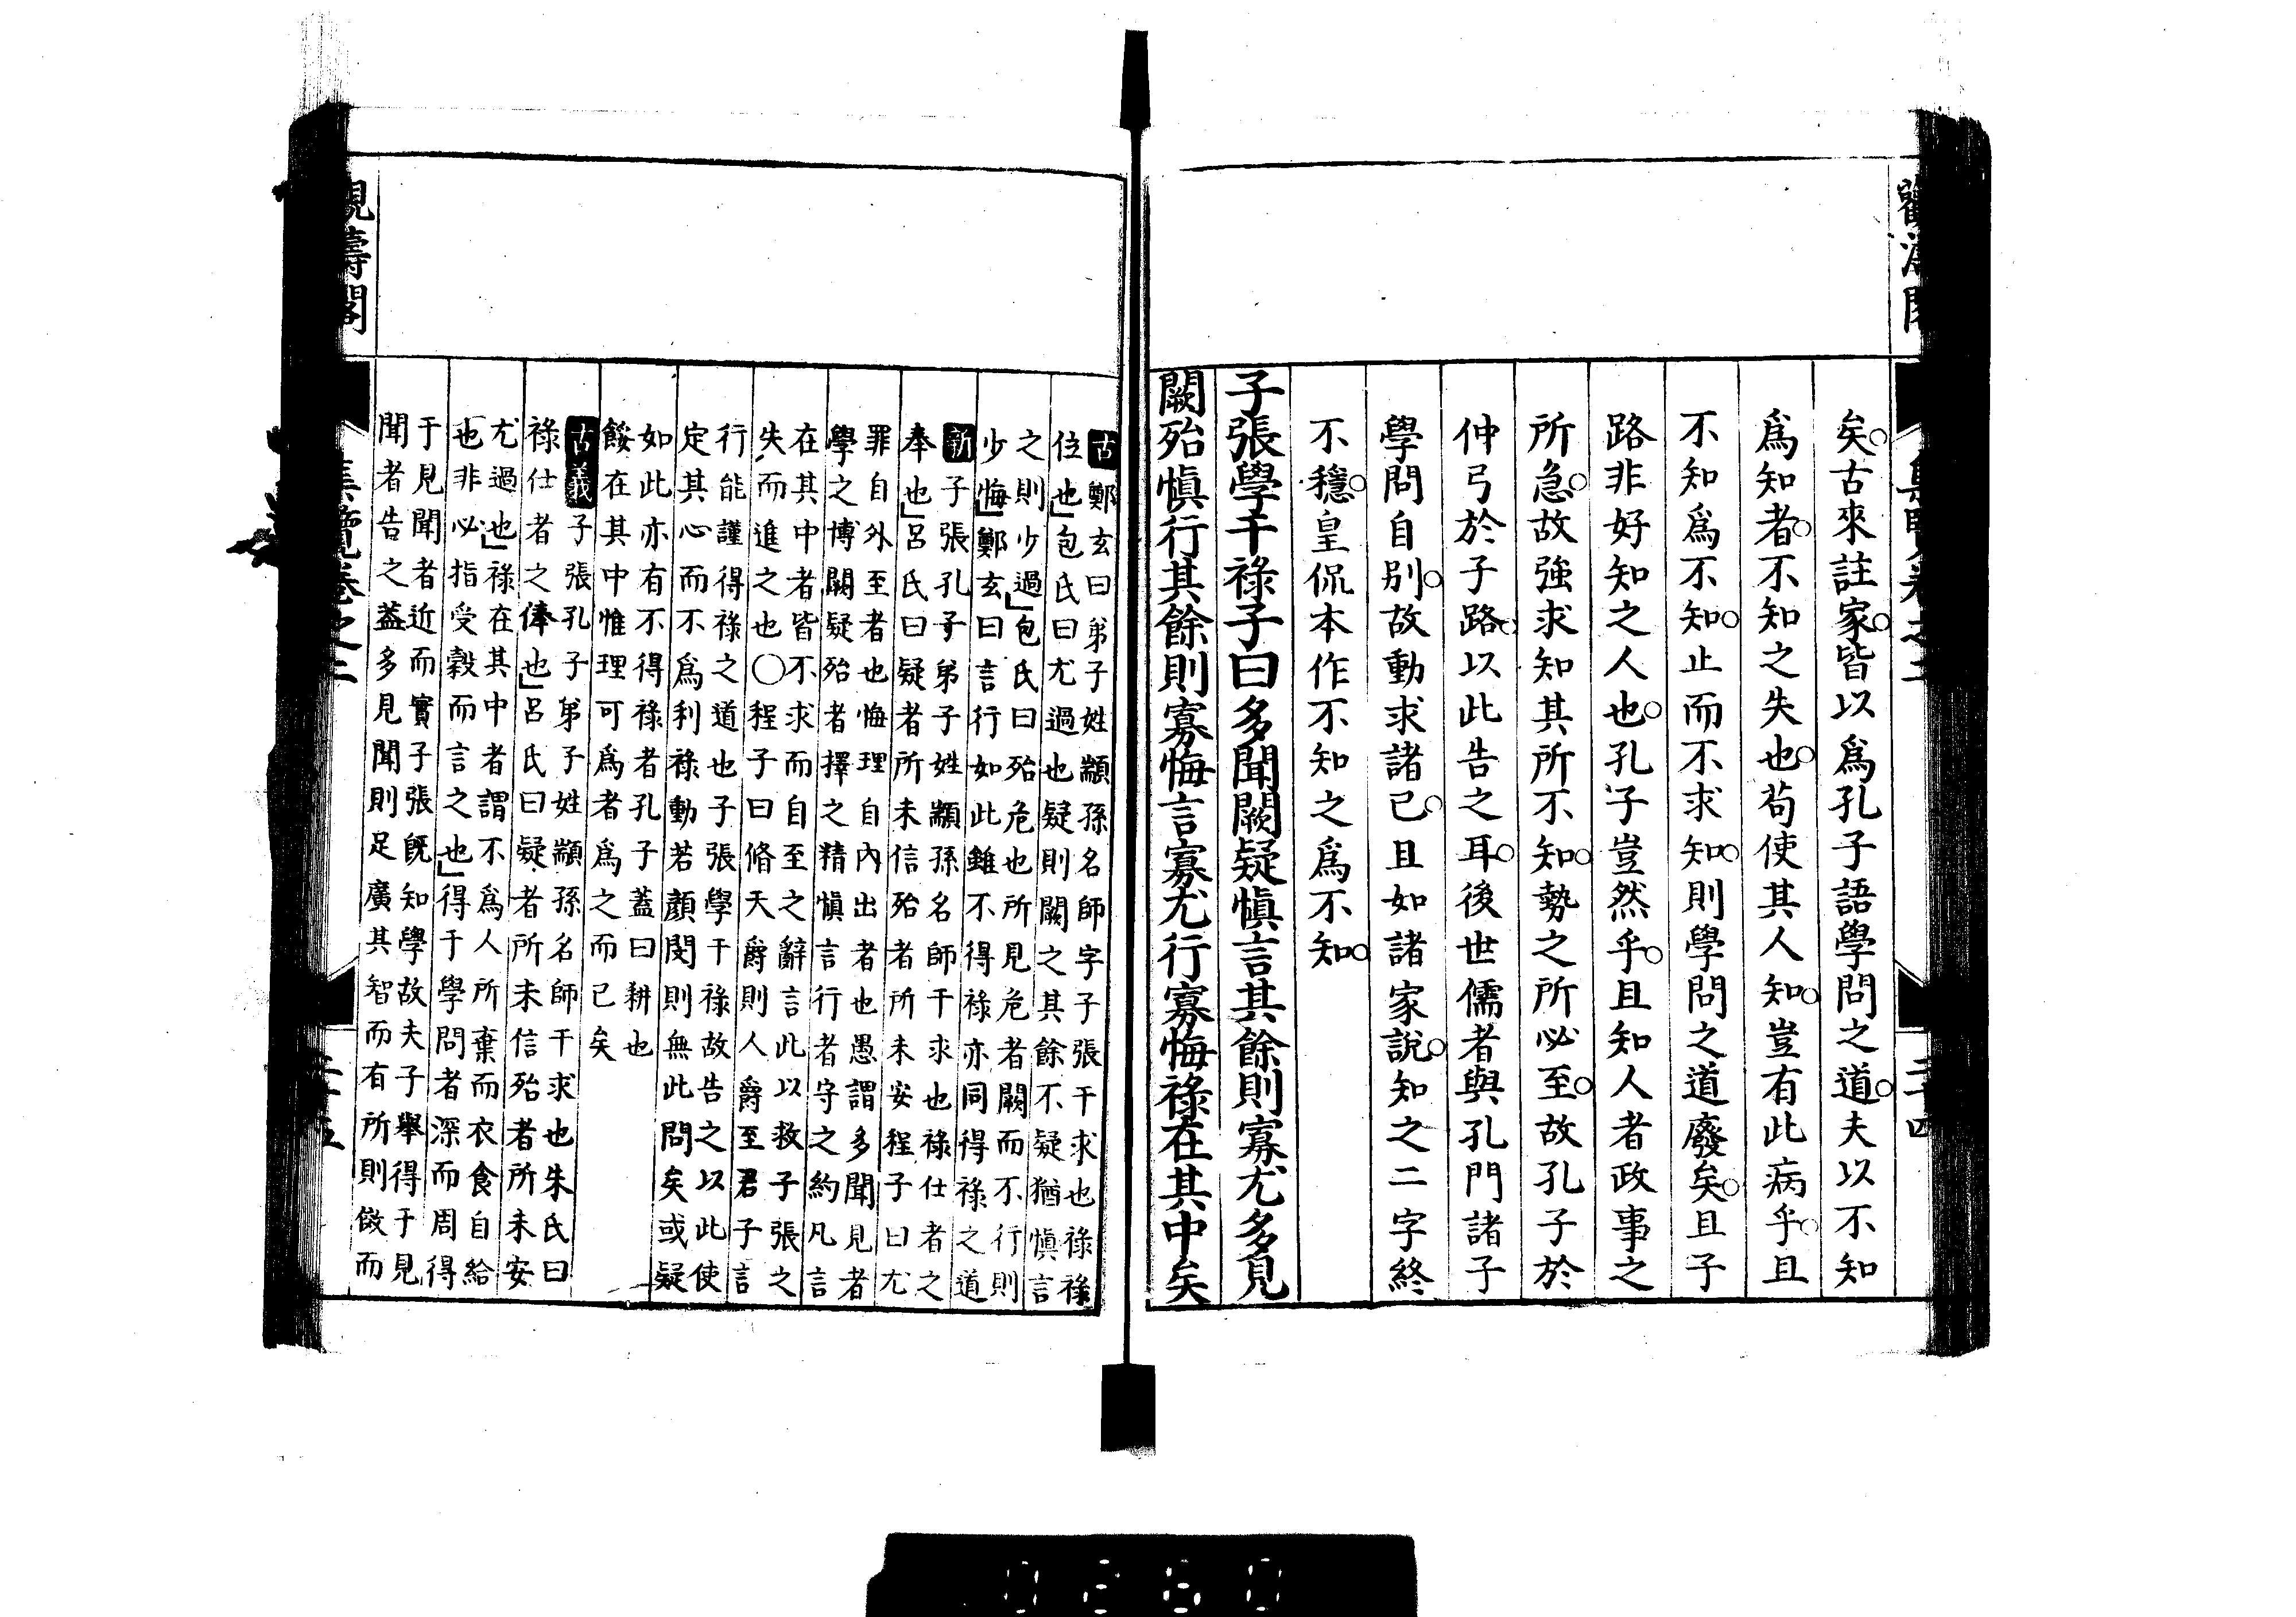 矣古來註家皆以爲孔子語學問之道夫以不知
爲知者不知之失也苟使其人知豈有此病乎且
不知爲不知止而不求知則學問之道廢矣且子
路非好知之人也孔子豈然乎且知人者政事之
所急故強求知其所不知勢之所必至故孔子於
仲弓於子路以此告之耳後世儒者與孔門諸子
學問自別故動求諸己且如諸家說知之二字終
不穩皇侃本作不知之爲不知
子張學干祿子曰多聞闕疑愼言其餘則寡尤多見
闕殆愼行其餘則寡悔言寡尤行寡悔祿在其中矣
古鄭玄曰弟子姓顓孫名師字子張干求也祿祿
位也包氏曰尤過也疑則闕之其餘不疑猶愼言
之則少過包氏曰殆危也所見危者闕而不行則
少悔鄭玄曰言行如此雖不得祿亦同得祿之道
新子張孔子弟子姓顓孫名師干求也祿仕者之
奉也呂氏曰疑者所未信殆者所未安程子曰尤
罪自外至者也悔理自內出者也愚謂多聞見者
學之博闕疑殆者擇之精愼言行者守之約凡言
在其中者皆不求而自至之辭言此以救子張之
失而進之也○程子曰脩天爵則人爵至君子言
行能謹得祿之道也子張學干祿故告之以此使
定其心而不爲利祿動若顏閔則無此問矣或疑
如此亦有不得祿者孔子蓋曰耕也
餒在其中惟理可爲者爲之而已矣
古義子張孔子弟子姓顓孫名師干求也朱氏曰
祿仕者之俸也呂氏曰疑者所未信殆者所未安
尤過也祿在其中者謂不爲人所棄而衣食自給
也非必指受穀而言之也得于學問者深而周得
于見聞者近而實子張旣知學故夫子舉得于見
聞者告之蓋多見聞則足廣其智而有所則傚而
集覽卷之二